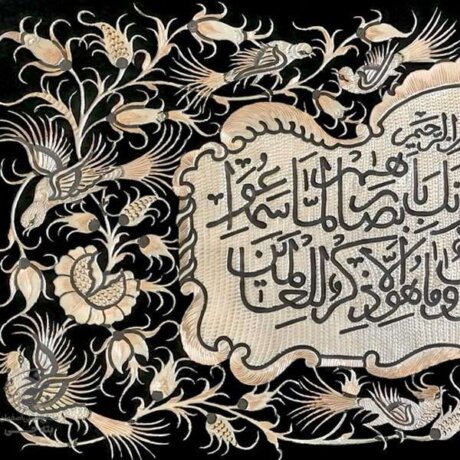 الرحيم
نك بابصارهم لما سمعوا
وما هو الا ذكر للعالمين